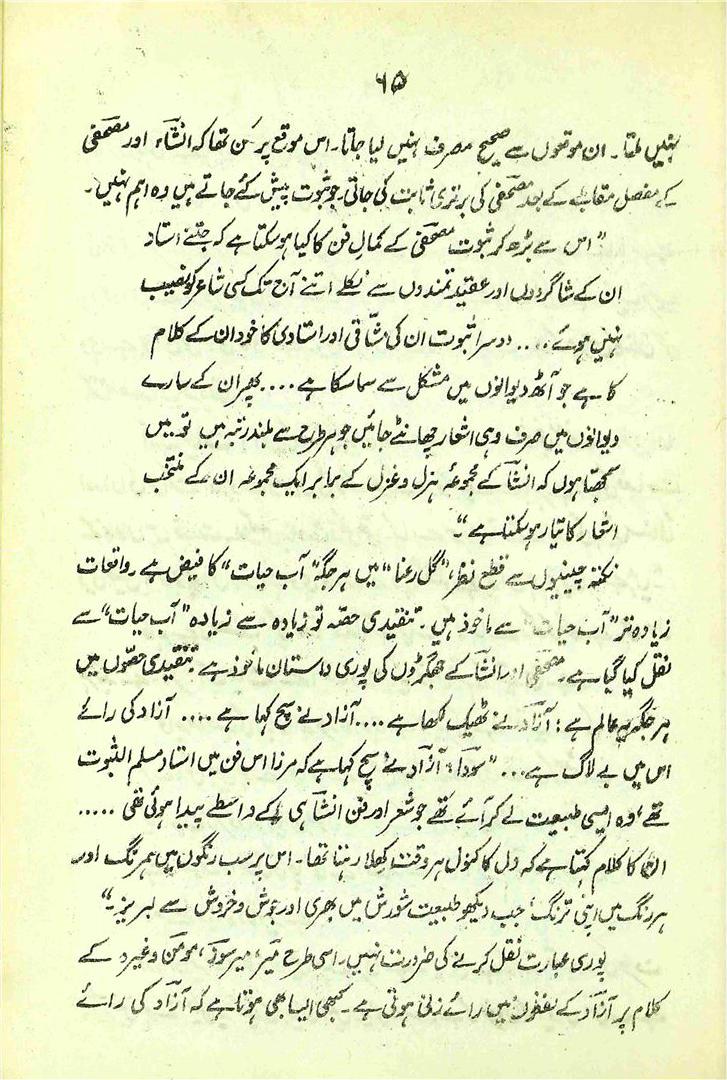 ۶۵
نہیں ملتا۔ ان موقعوں سے صحیح مصرف نہیں لیا جاتا۔ اس موقع پر ممکن تھا کہ انشآء اور مصحفی
کے مفصل مقابلے کے بعد مصحفی کی برتری ثابت کی جاتی۔ جو ثبوت پیش کئے جاتے ہیں وہ اہم نہیں۔
"اس سے بڑھ کر ثبوت مصحفی کے کمال فن کا کیا ہو سکتا ہے کہ جتنے استاد
ان کے شاگردوں اور عقیدتمندوں سے نکلے اتنے آج تک کسی شاعر کو نصیب
نہیں ہوئے.... دوسرا ثبوت ان کی مشّاقی اور استادی کا خود ان کے کلام
کا ہے جو آٹھ دیوانوں میں مشکل سے سما سکا ہے.... پھر ان کے سارے
دیوانوں میں صرف وہی اشعار چھانٹے جائیں جو ہر طرح سے بلند رتبہ ہیں تو میں
سمجھتا ہوں کہ انشآ کے مجموعۂ ہزل و غزل کے برابر ایک مجموعہ ان کے منتخب
اشعار کا تیار ہو سکتا ہے"۔
نکتہ چینیوں سے قطع نظر، "گل رعنا" میں ہر جگہ "آب حیات" کا فیض ہے۔ واقعات
زیادہ تر "آب حیات" سے ماخوذ ہیں۔ تنقیدی حصّہ تو زیادہ سے زیادہ "آب حیات" سے
نقل کیا گیا ہے۔ مصحفی اور انشآ کے جھگڑوں کی پوری داستان ماخوذ ہے۔ تنقیدی حصّوں میں
ہر جگہ یہ عالم ہے: آزاد نے ٹھیک لکھا ہے.... آزاد نے سچ کہا ہے.... آزاد کی رائے
اس میں بے لاگ ہے... "سودا: آزاد نے سچ کہا ہے کہ مرزا اس فن میں استاد مسلم الثبوت
تھے، وہ ایسی طبیعت لے کر آئے تھے جو شعر اور فن انشآ ہی کے واسطے پیدا ہوئی تھی .....
ان کا کلام کہتا ہے کہ دل کا کنول ہر وقت کھلا رہتا تھا۔ اس پر سب رنگوں میں ہمرنگ اور
ہر رنگ میں اپنی ترنگ، جب دیکھو طبیعت شورش میں بھری اور جوش و خروش سے لبریز۔"
پوری عبارت نقل کرنے کی ضرورت نہیں۔ اسی طرح میر، میر سوز، مومن وغیرہ کے
کلام پر آزاد کے لفظوں میں رائے زنی ہوتی ہے۔ کبھی ایسا بھی ہوتا ہے کہ آزاد کی رائے